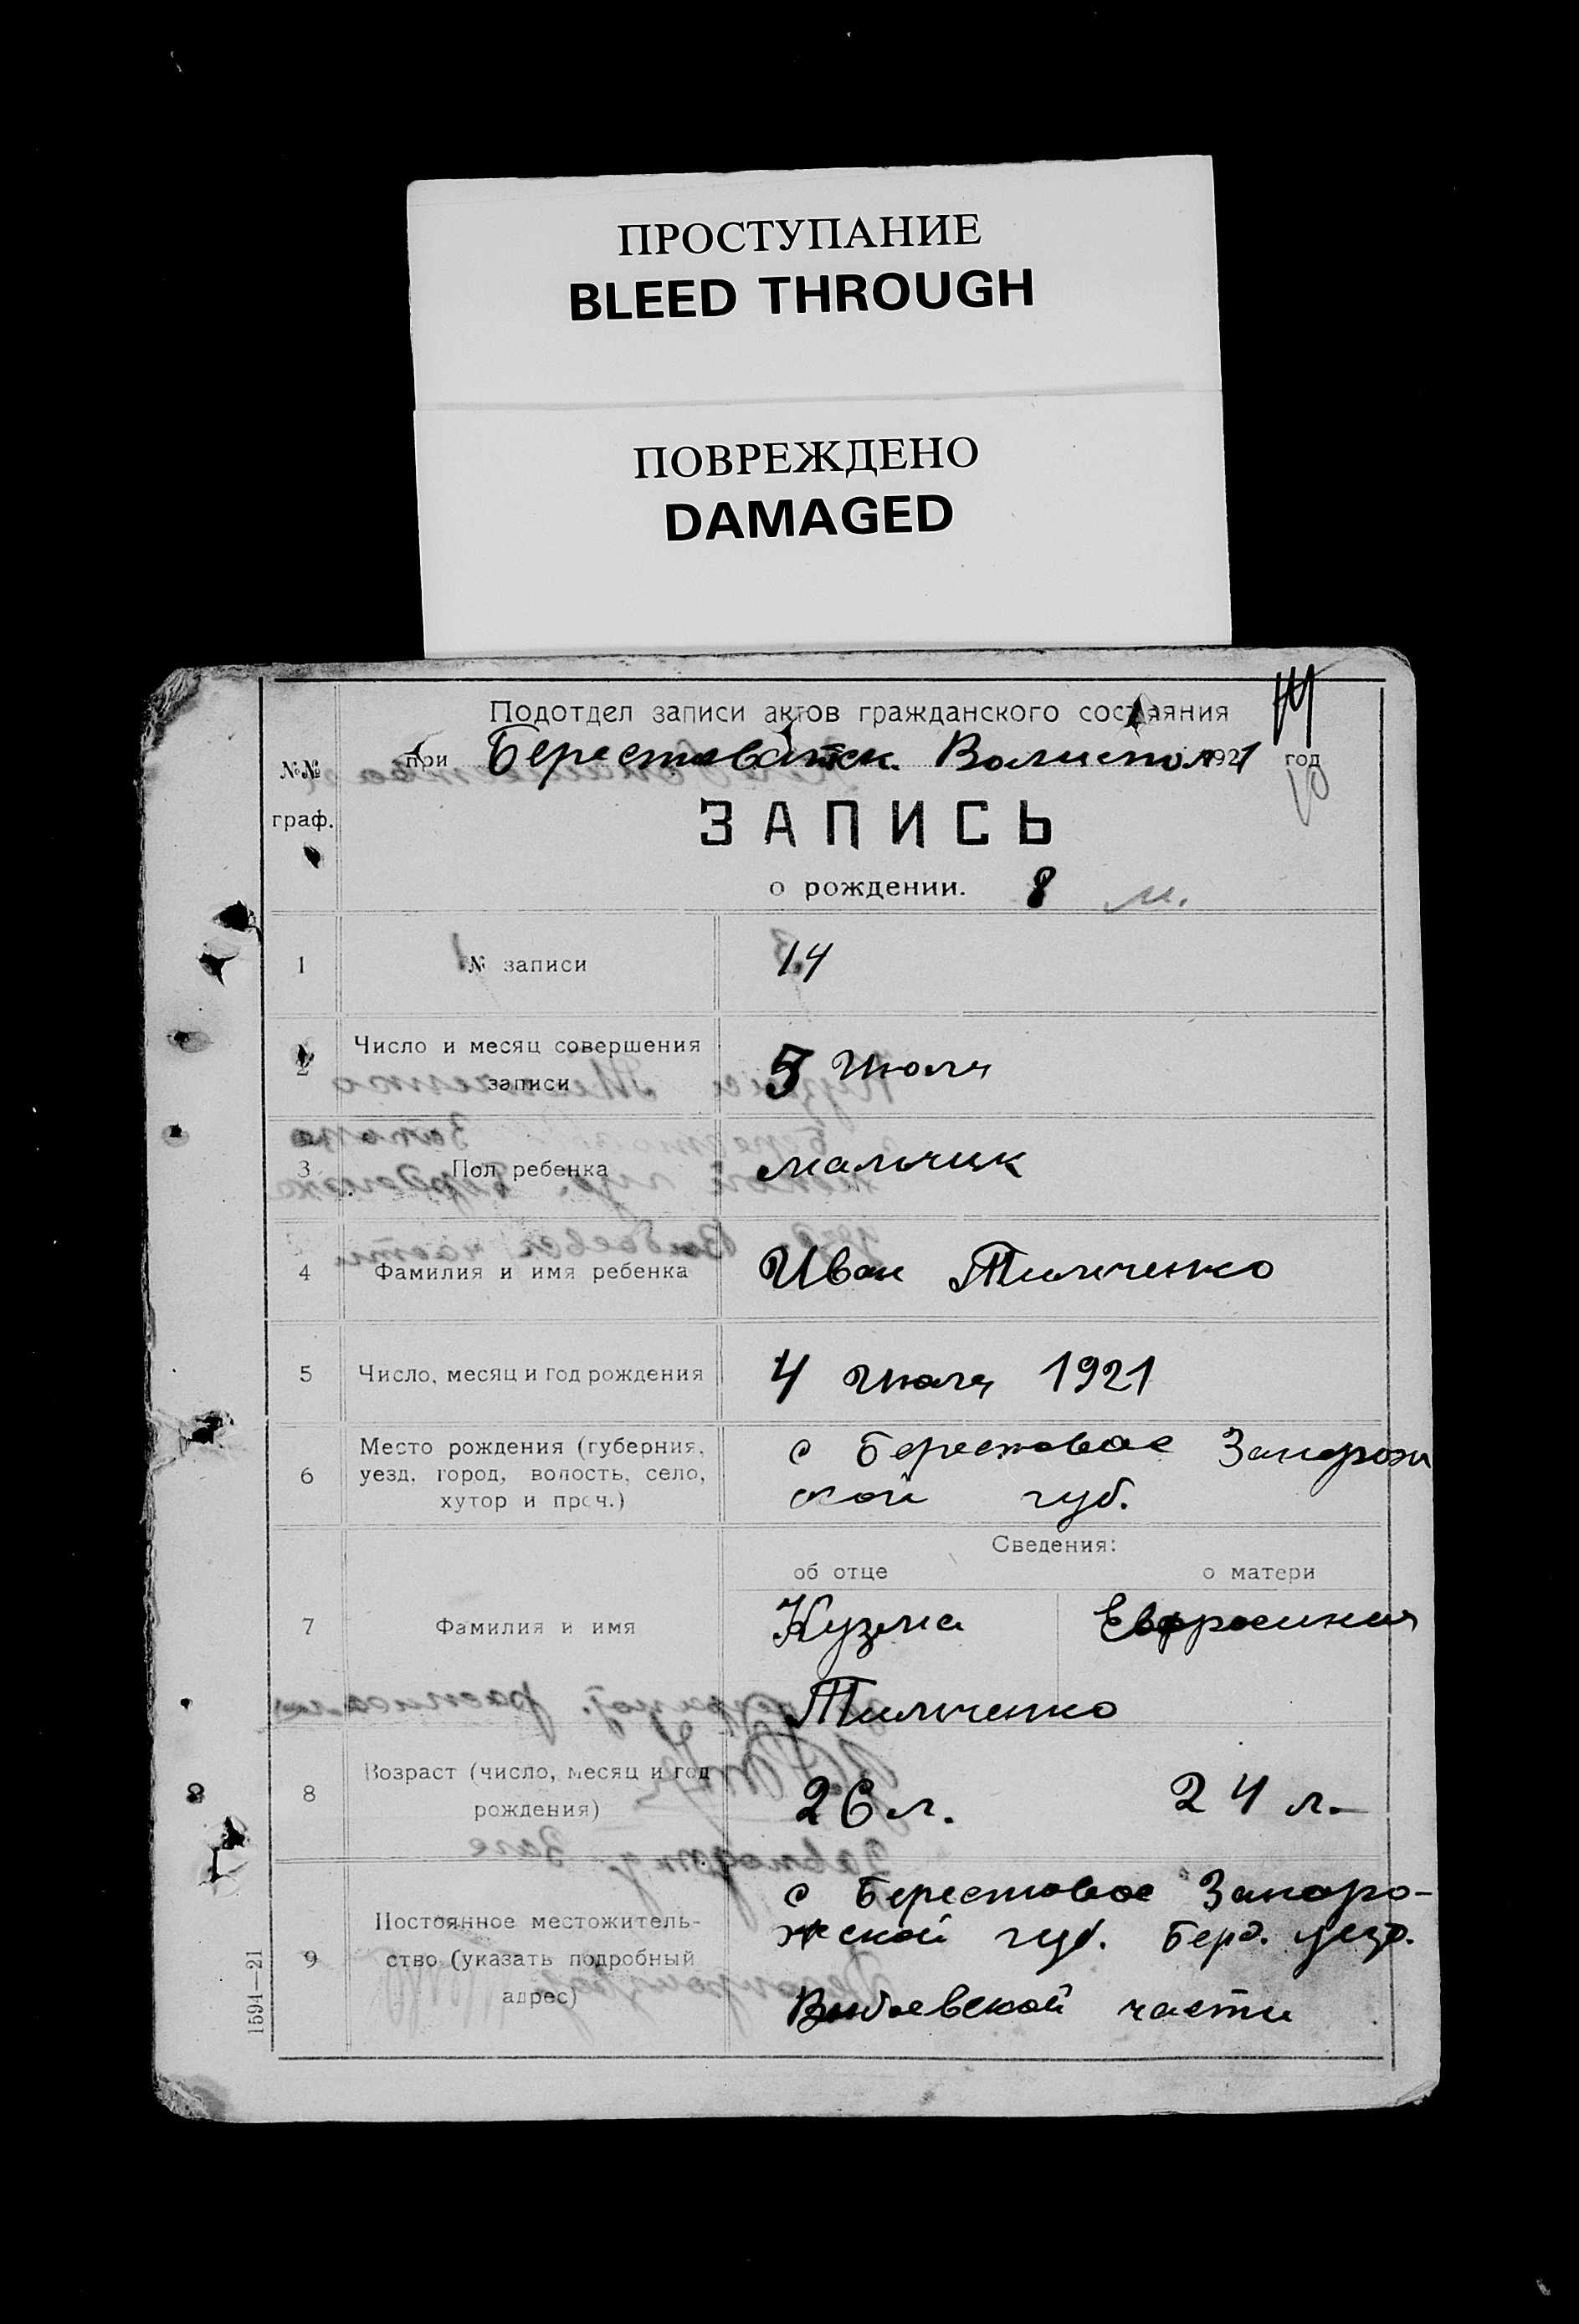 ПРОСТУПАНИЕ
BLEED THROUGH
ПОВРЕЖДЕНО
DAMAGED
Подотдел записи актов гражданского состояния
№№ граф.
при Берестоватск. 1921 год
ЗАПИСЬ
о рождении. 8 м.
1 № записи 14
2 Число и месяц совершения
записи 5 Июля
3 Пол ребенка мальчик
4 Фамилия и имя ребенка Иван Тимченко
5 Число, месяц и год рождения 4 Июля 1921
6 Место рождения (губерния,
уезд, город, волость, село,
хутор и проч.)
с Берестовое Запорож
ской губ.
Сведения:
об отце о матери
7 Фамилия и имя Кузма Евфросиния
Тимченко
8 Возраст (число, месяц и год
рождения) 26 л. 24 л.
9 Постоянное местожитель-
ство (указать подробный
адрес)
с Берестовое Запоро-
жской губ. Берд. уезд.
части
1594—21